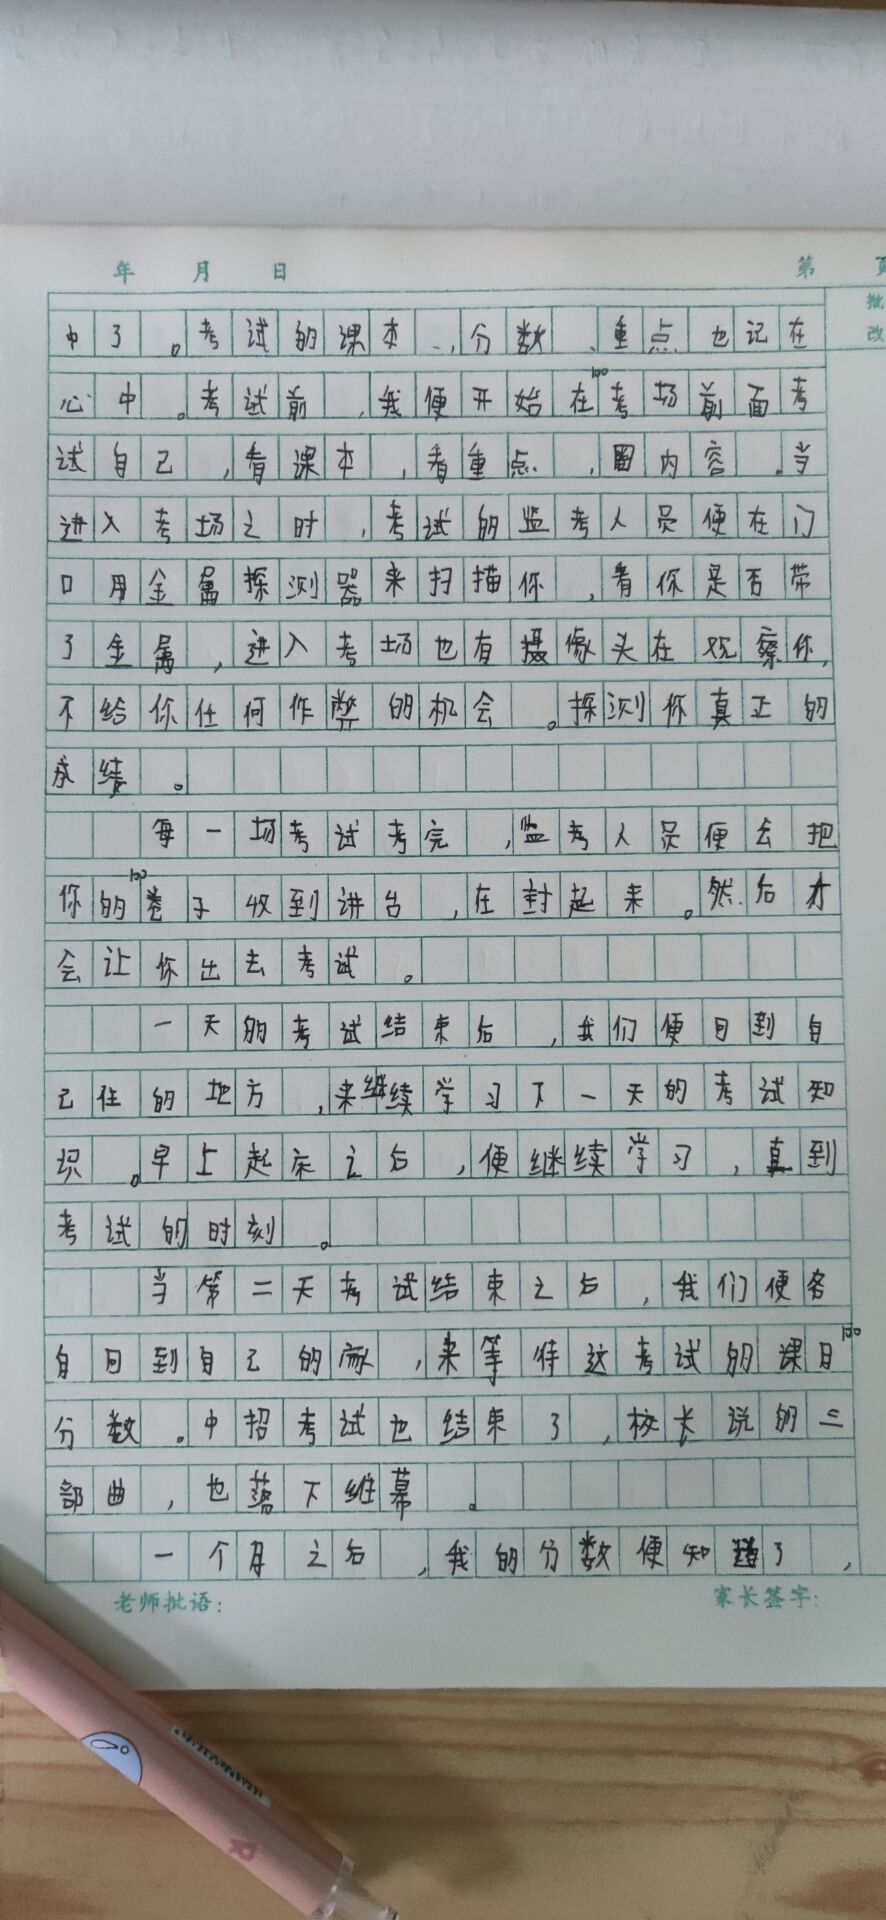 年 月 日 第 页
批
改
中了。考试的课本、分数、重点也记在
心中。考试前,我便开始在考场前面考
100
试自己,看课本,看重点,圈内容。当
进入考场之时,考试的监考人员便在门
口用金属探测器来扫描你,看你是否带
了金属,进入考场也有摄像头在观察你,
不给你任何作弊的机会。探测你真正的
成绩。
每一场考试考完,监考人员便会把
100
你的卷子收到讲台,在封起来。然后才
会让你出去考试。
一天的考试结束后,我们便回到自
己住的地方,来继续学习下一天的考试知
识。早上起床之后,便继续学习,直到
考试的时刻。
当第二天考试结束之后,我们便各
自回到自己的家,来等待这考试的课目
100
分数。中招考试也结束了,校长说的三
部曲,也落下维幕。
一个月之后,我的分数便知道了,
老师批语: 家长签字: